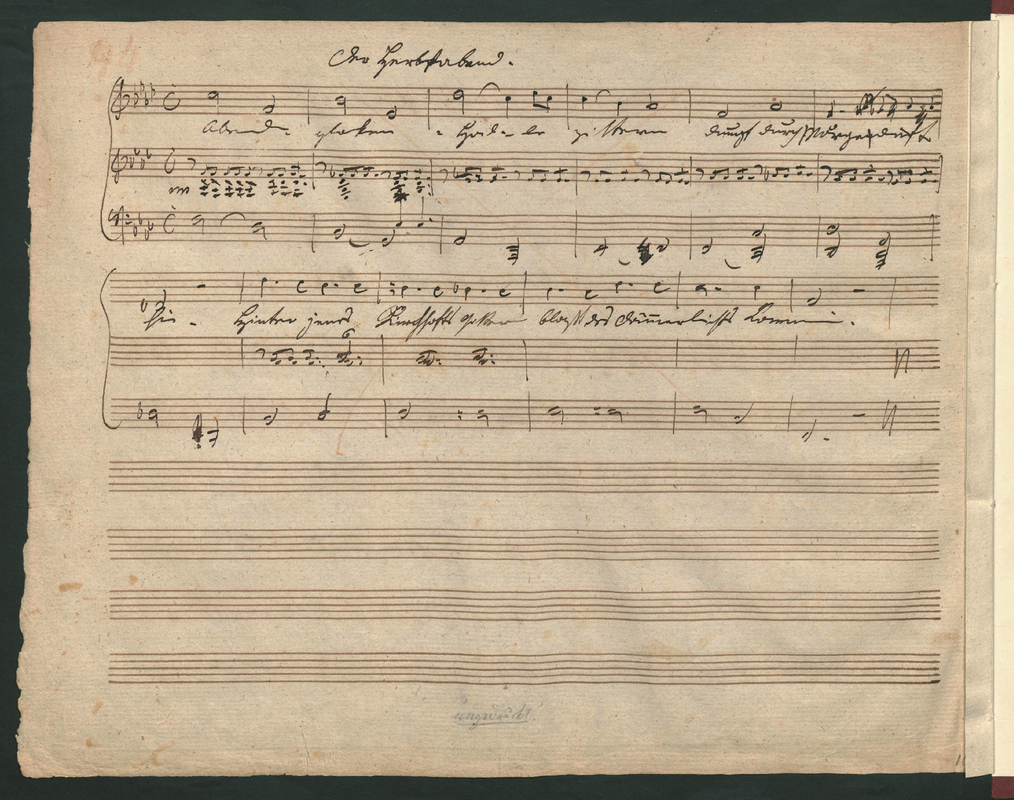 Der Herbstabend.
Abend - gloken - Hal - le zittern dumpf durch
hin - Hinter jenes Kirchhofs Gittern blaßt des Dämmerlichts Karmin.
ungedruckt!